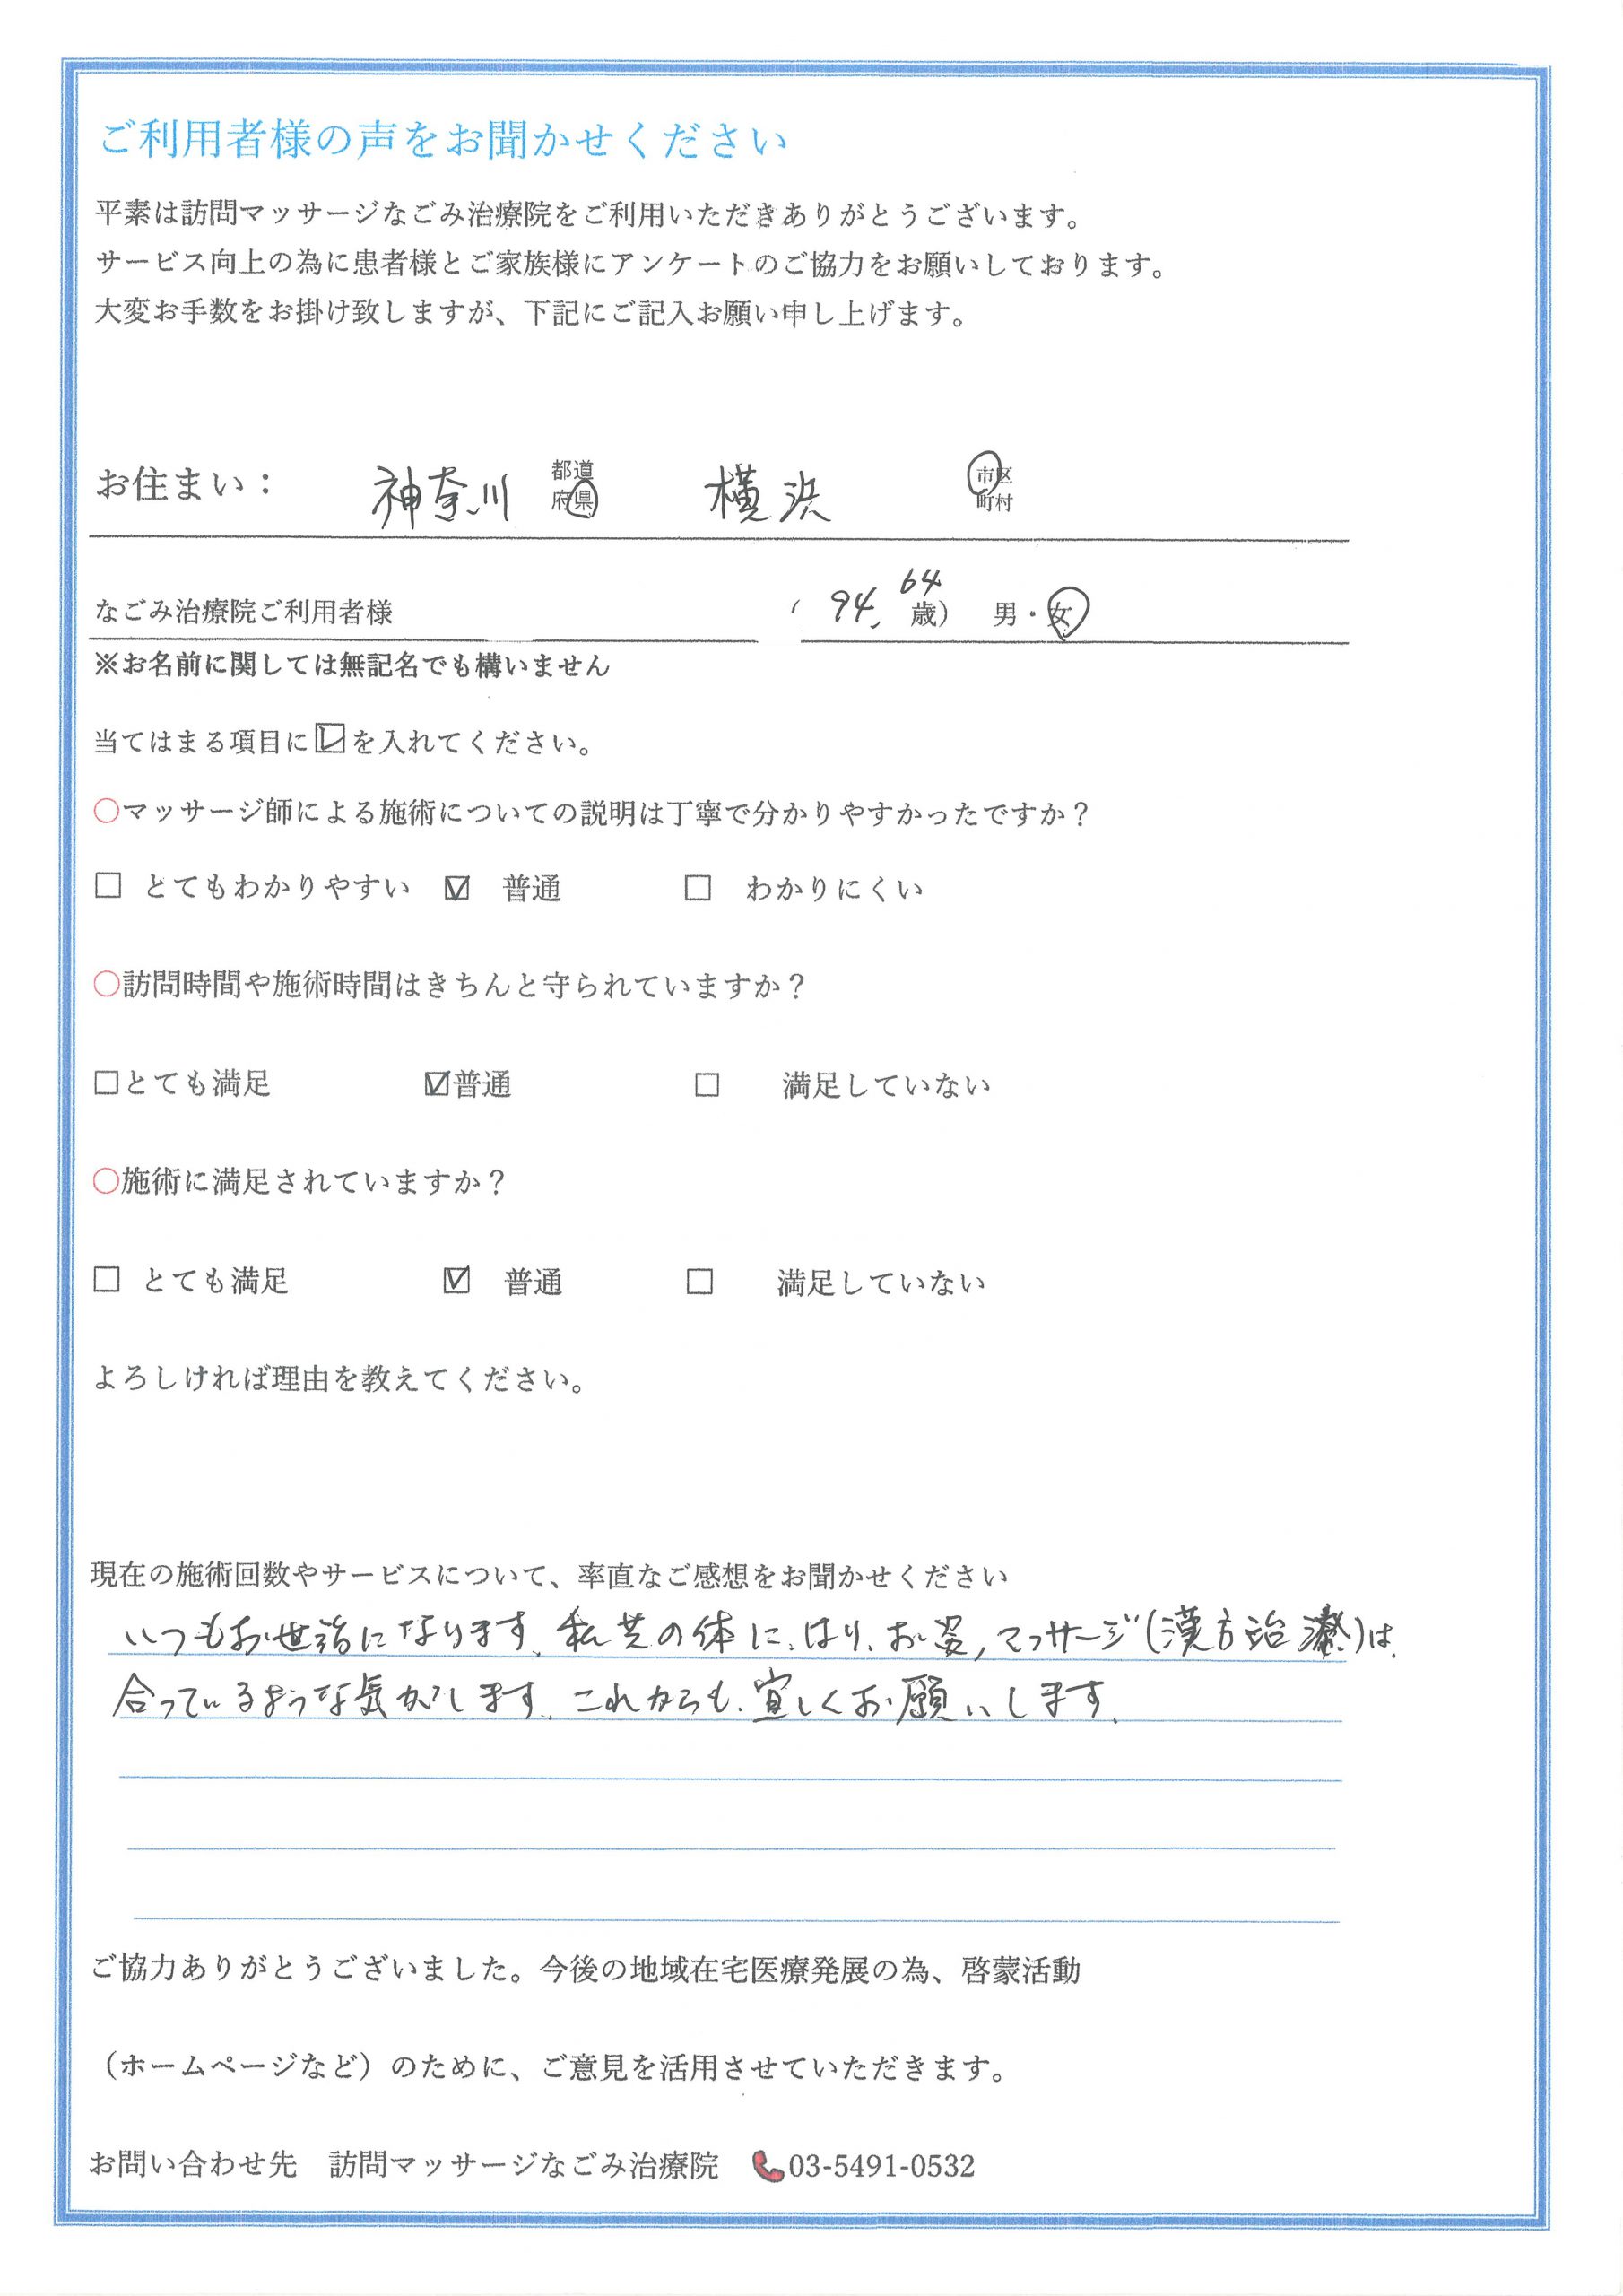 ご利用者様の声をお聞かせください
平素は訪問マッサージなごみ治療院をご利用いただきありがとうございます。
サービス向上の為に患者様とご家族様にアンケートのご協力をお願いしております。
大変お手数をお掛け致しますが、下記にご記入お願い申し上げます。
お住まい： 神奈川 都道府県 横浜 市区町村
なごみ治療院ご利用者様 （ 94、64 歳） 男・女
※お名前に関しては無記名でも構いません
当てはまる項目に☑を入れてください。
○マッサージ師による施術についての説明は丁寧で分かりやすかったですか？
□ とてもわかりやすい ☑ 普通 □ わかりにくい
○訪問時間や施術時間はきちんと守られていますか？
□とても満足 ☑普通 □ 満足していない
○施術に満足されていますか？
□ とても満足 ☑ 普通 □ 満足していない
よろしければ理由を教えてください。
現在の施術回数やサービスについて、率直なご感想をお聞かせください
いつもお世話になります、私共の体に、はり、お、マッサージ(漢方治療)は、
合っているような気がします、これからも、宜しくお願いします、
ご協力ありがとうございました。今後の地域在宅医療発展の為、啓蒙活動
（ホームページなど）のために、ご意見を活用させていただきます。
お問い合わせ先 訪問マッサージなごみ治療院 03-5491-0532